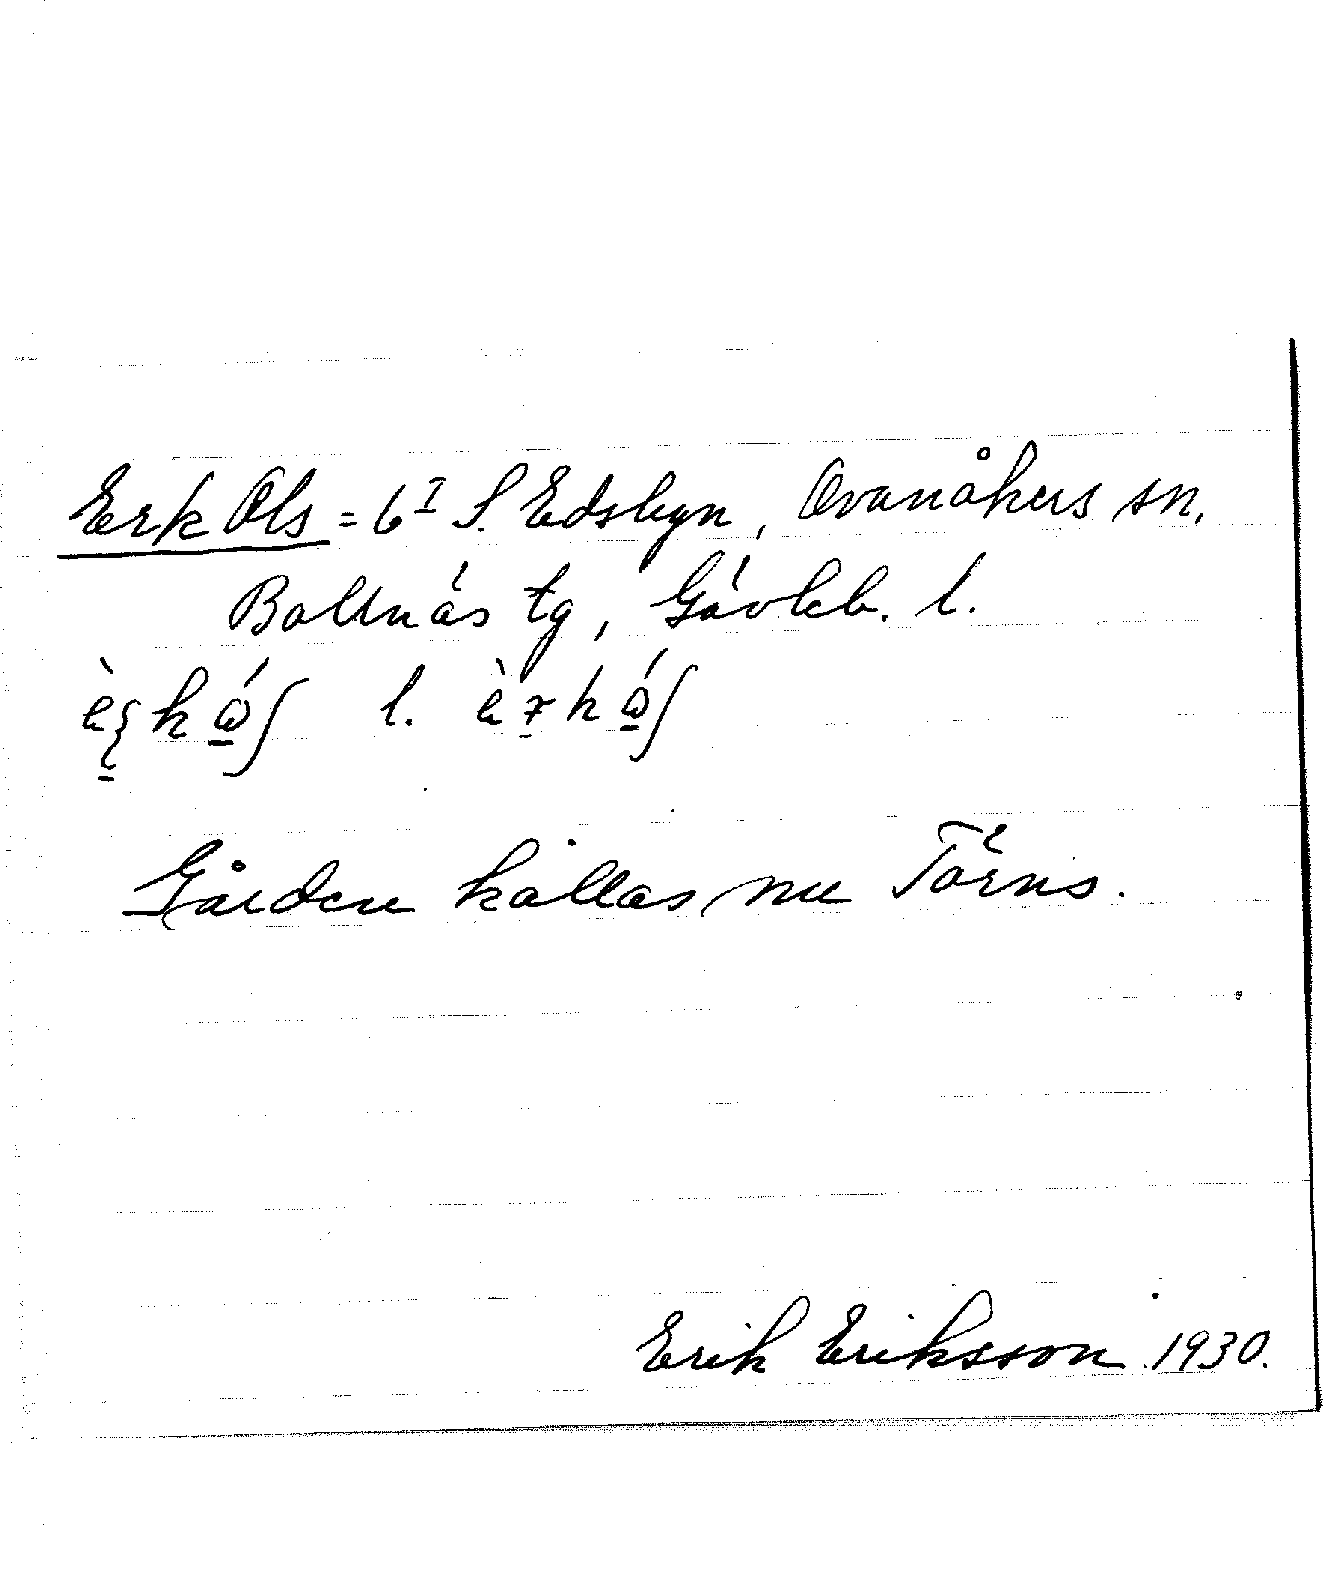 Erk Ols = 6ᴵ S. Edsbyn, Ovanåkers sn,
Bollnäs tg, Gävleb. l.
l.
Gården kallas nu Törns.
Erik Eriksson 1930.